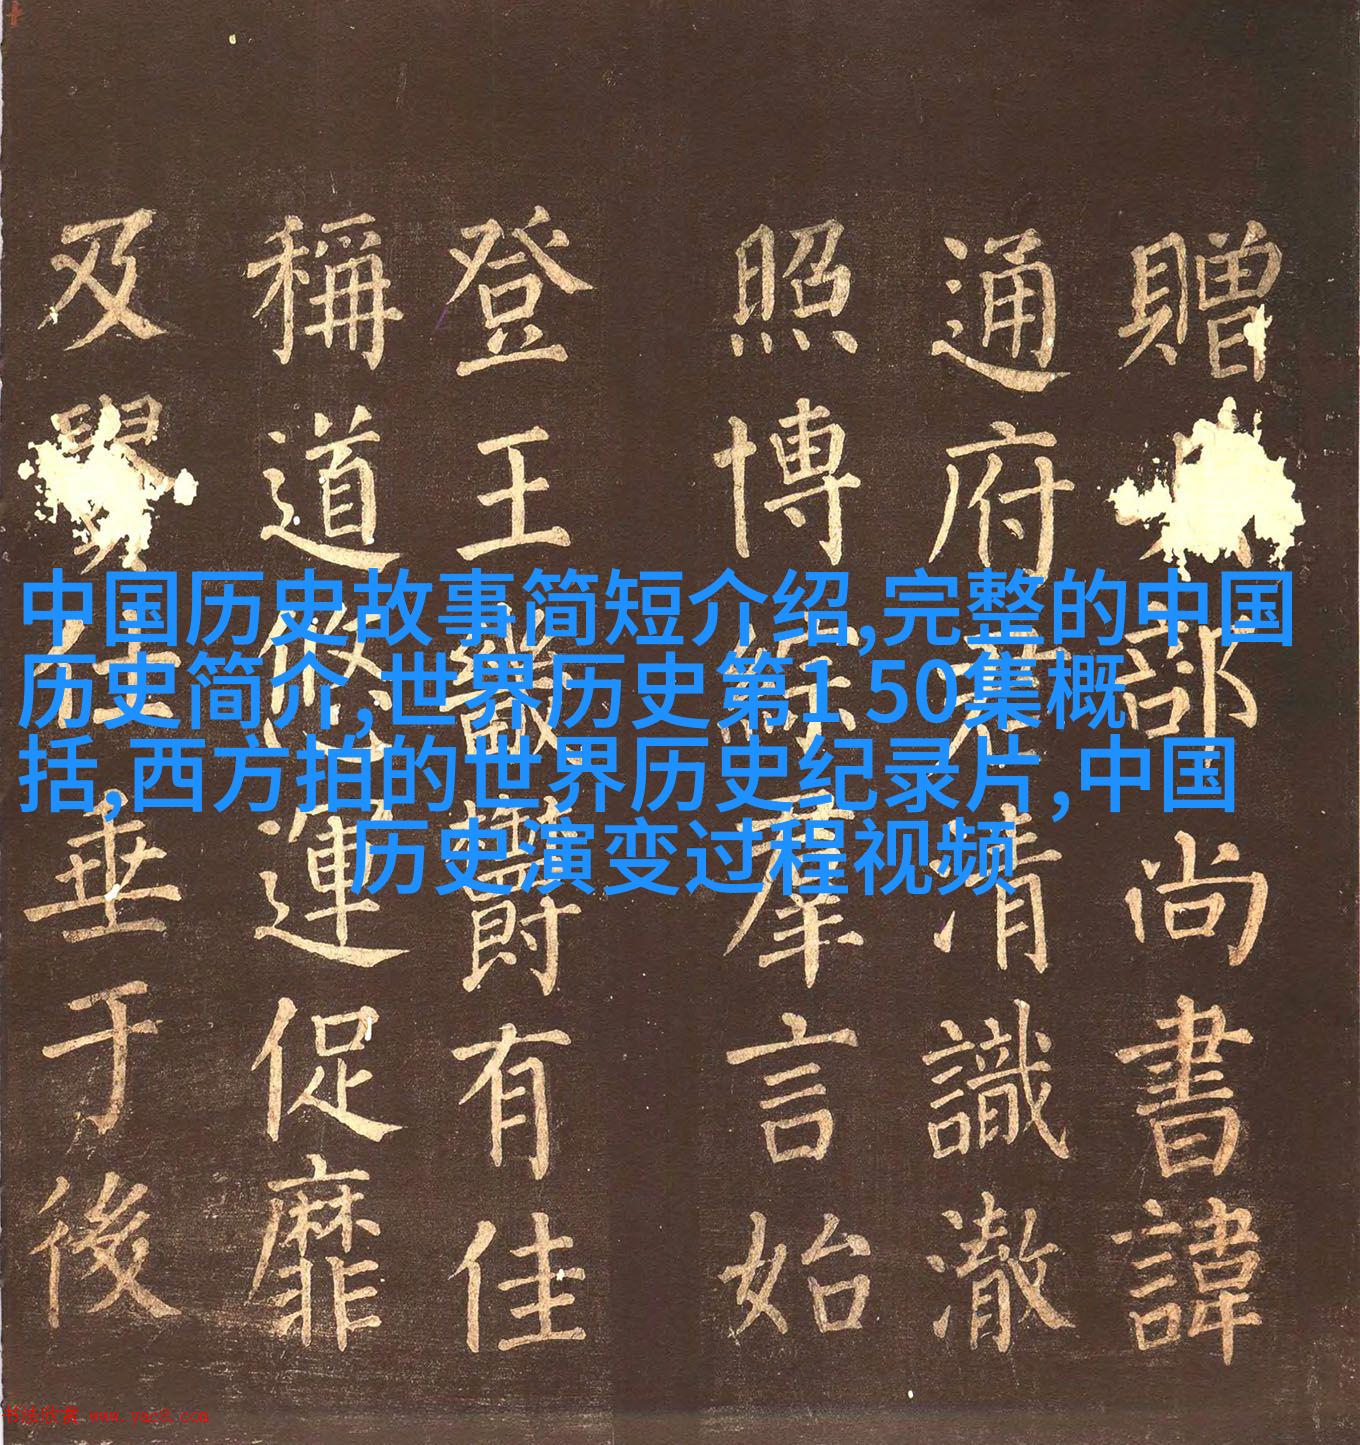 中国历史故事简短介绍,完整的中国
历史简介,世界历史第1 50集概
括,西方拍的世界历史纪录片,中国
历史演变过程视频
贈部尚書諱
通府君清識澈
照博綜羣言始
登王畿有佳
稱道悠運促靡
及垂于後
书法欣赏 www.yac8.com